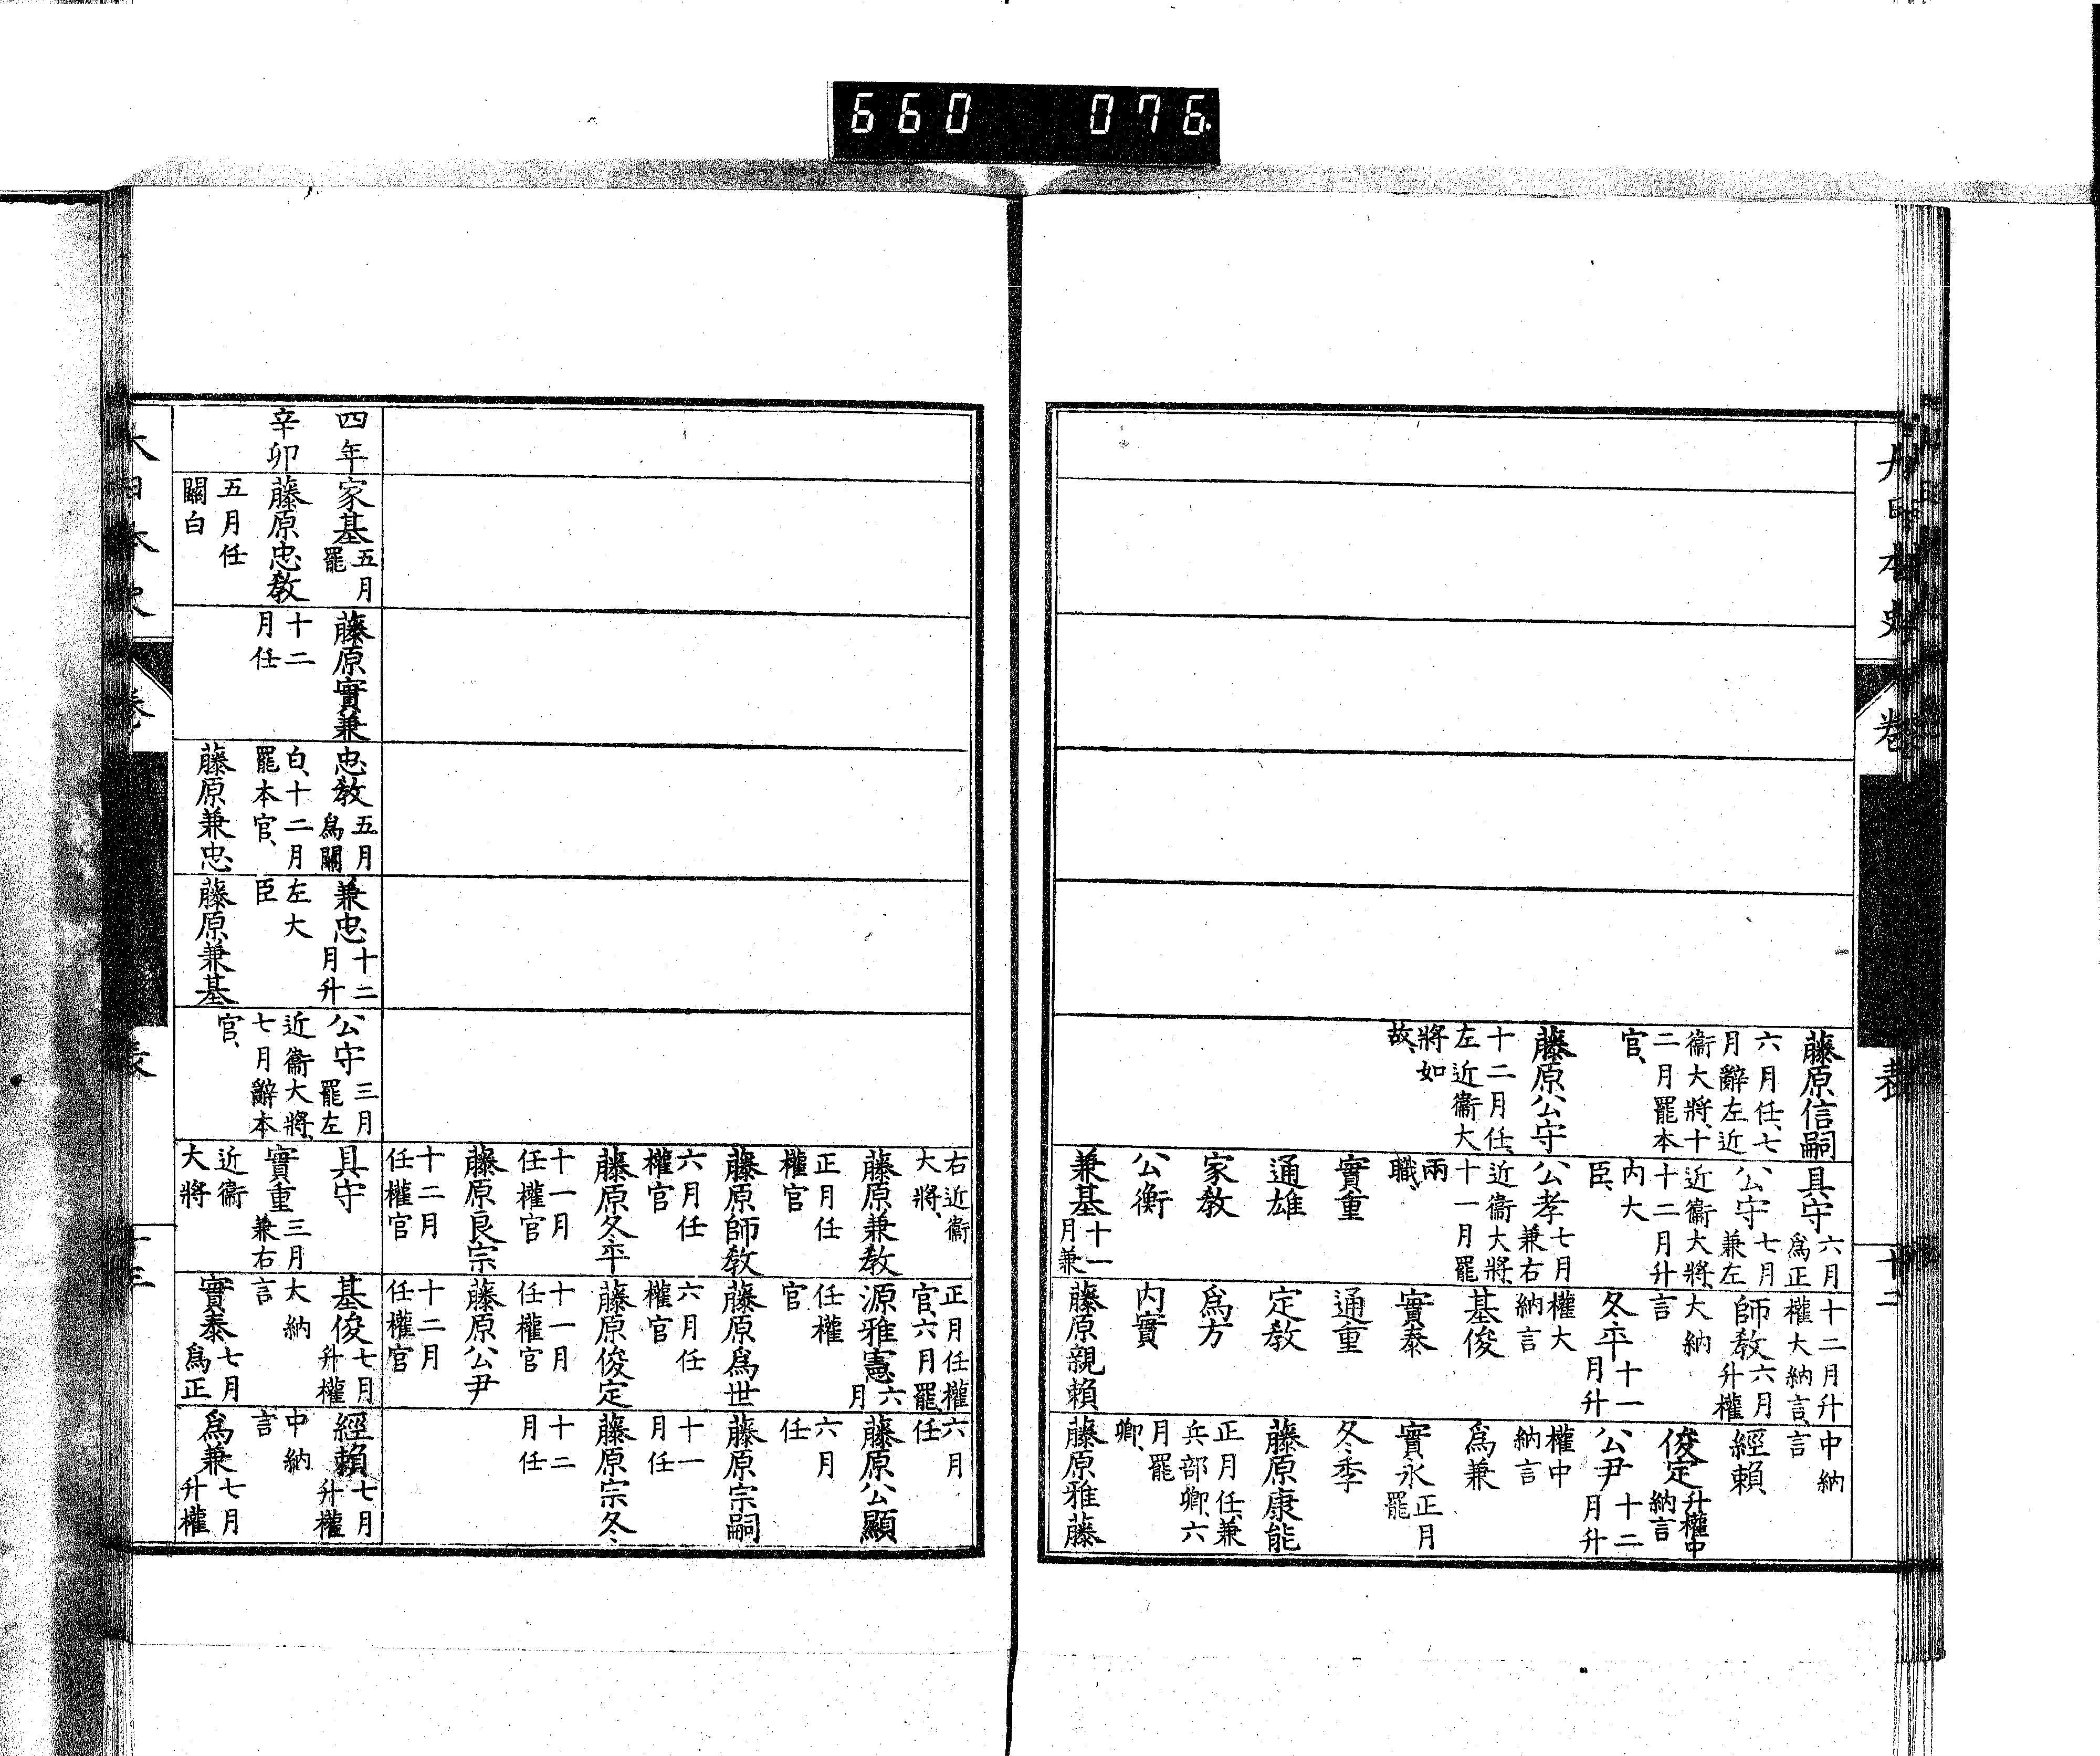 660 076
大日本史
卷
表
十二
藤原信嗣
六月任、七
月辭左近
衞大將、十
二月罷本
官、
藤原公守
十二月任、
左近衞大
將如
故、
具守六月
爲正
公守七月
兼左
近衞大將、
十二月升
內大
臣、
公孝七月
兼右
近衞大將、
十一月罷
兩
職、
實重
通雄
家敎
公衡
兼基十一
月兼
右近衞
大將、
藤原兼敎
正月任
權官
藤原師敎
六月任
權官
藤原冬平
十一月
任權官
藤原良宗
十二月
任權官
十二月升
權大納言、
師敎六月
升權
大納
言
冬平十一
月升
權大
納言
基俊
實泰
通重
定敎
爲方
內實
藤原親賴
正月任權
官、六月罷、
源雅憲六
月
任權
官
藤原爲世
六月任
權官
藤原俊定
十一月
任權官
藤原公尹
十二月
任權官
中納
言
經賴
俊定升權中
納言
公尹十二
月升
權中
納言
爲兼
實永正月
罷
冬季
藤原康能
正月任、兼
兵部卿、六
月罷
卿、
藤原雅藤
六月
任
藤原公顯
六月
任
藤原宗嗣
十一
月任
藤原宗冬
十二
月任
四年
辛卯
家基五月
罷
藤原忠敎
五月任
關白
藤原實兼
十二
月任
忠敎五月
爲關
白、十二月
罷本官、
藤原兼忠
兼忠十二
月升
左大
臣
藤原兼基
公守三月
罷左
近衞大將、
七月辭本
官、
具守
實重三月
兼右
近衞
大將
基俊七月
升權
大納
言
實泰七月
爲正
經賴七月
升權
中納
言
爲兼七月
升權
大日本史
卷
表
十三